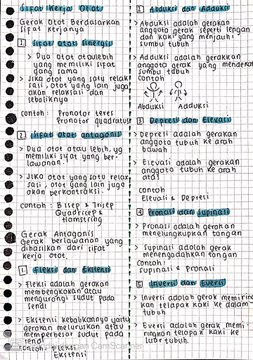 Sifat Kerja Otot
Gerak Otot Berdasarkan
Sifat Kerjanya
1 Sifat Otot Sinergis
> Dua otot atau lebih
yang memiliki sifat
yang sama
> Jika otot yang satu relak
sasi, otot yang lain juga
akan relaksasi dan
sebaliknya
contoh : Pronator teres
Pronator Quadratus
2 Sifat otot antagonis
> Dua otot atau lebih, yg
memiliki sifat yang ber-
lawanan.
> Jika otot yang satu relak
sasi, otot yang lain juga
akan berkontraksi.
contoh : Bisep & Trisep
Quadricep &
Hamstring
Gerak Antagonis
Gerak berlawanan yang
dihasilkan dari sifat
kerja otot.
1 Fleksi dan Ekstensi
> Fleksi adalah gerakan
membengkokan atau
mengurangi sudut pada
Sendi
> Ekstensi kebalikannya yaitu
gerakan meluruskan atau
memperbesar sudut pada
sendi
Contoh : Fleksi
Ekstensi
CamScanner
2 Abduksi dan Adduksi
> Abduksi adalah gerakan
anggota gerak seperti lengan
dan kaki yang menjauhi
sumbu tubuh
> Adduksi adalah gerakan
anggota gerak yang mendekati
sumbu tubuh
Contoh
Abduksi Adduksi
3 Depresi dan Elevasi
> Depresi adalah gerakan
anggota tubuh ke arah
bawah
> Elevasi adalah gerakan
anggota tubuh ke arah
atas
contoh
Elevasi & Depresi
4 Pronasi dan Supinasi
> Pronasi adalah gerakan
menelungkupkan tangan
> Supinasi adalah gerakan
menengadahkan tangan
Contoh :
Supinasi & Pronasi
5 Inversi dan Eversi
> Inversi adalah gerak memirin
kan telapak kaki ke dalam
tubuh
> Eversi adalah gerak memi
ringkan telapak kaki ke
luar tubuh